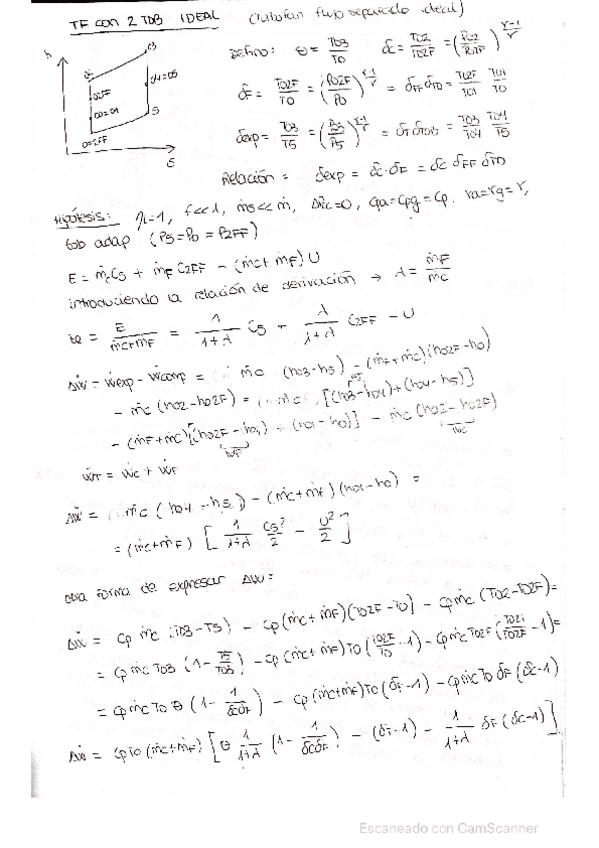 TF con 2 TDB IDEAL (Turbofan flujo separado ideal)
h
Defino: θ = T03/T0 δc = T02/T02F = (P02/P02F)^(γ-1/γ)
03
02F
04=05
00=01
5
0=2FF
S
δF = T02F/T0 = (P02F/P0)^(γ-1/γ) = δFF δTD = T02F/T01 T01/T0
δexp = T03/T5 = (P03/P5)^(γ-1/γ) = δT δTOB = T03/T04 T04/T5
Relación = δexp = δc·δF = δc δFF δTD
Hipótesis: ηi=1, f<<1, ṁs<<ṁ, Δṁc=0, Cpa=Cpg=Cp, γa=γg=γ,
tob adap (P5=P0=P2FF)
E = ṁcC5 + ṁF C2FF - (ṁc+ṁF)U
introduciendo la relación de derivación → λ = ṁF/ṁc
= E/(ṁc+ṁF) = 1/(1+λ) C5 + λ/(1+λ) C2FF - U
ΔẆ = Ẇexp - Ẇcomp = ṁc (h03-h5) - (ṁF+ṁc)(h02F-h0)
- ṁc (h02-h02F) = ṁc [(h03-h04)+(h04-h5)]
ẆT
- (ṁF+ṁc)[(h02F-h01) + (h01-h0)] - ṁc (h02-h02F)
ẆF ẆC
ẆT = Ẇc + ẆF
ΔẆ = ṁc (h04-h5) - (ṁc+ṁF)(h01-h0) =
= (ṁc+ṁF) [1/(1+λ) C5²/2 - U²/2]
otra forma de expresar ΔW:
ΔẆ = Cp ṁc (T03-T5) - Cp(ṁc+ṁF)(T02F-T0) - Cpṁc (T02-T02F) =
= Cpṁc T03 (1 - T5/T03) - Cp(ṁc+ṁF)T0 (T02F/T0 - 1) - Cpṁc T02F (T02/T02F - 1) =
= Cpṁc T0 θ (1 - 1/δcδF) - Cp(ṁc+ṁF)T0 (δF-1) - Cpṁc T0 δF (δc-1)
ΔẆ = CpT0 (ṁc+ṁF) [θ 1/(1+λ) (1 - 1/δcδF) - (δF-1) - 1/(1+λ) δF (δc-1)]
Escaneado con CamScanner